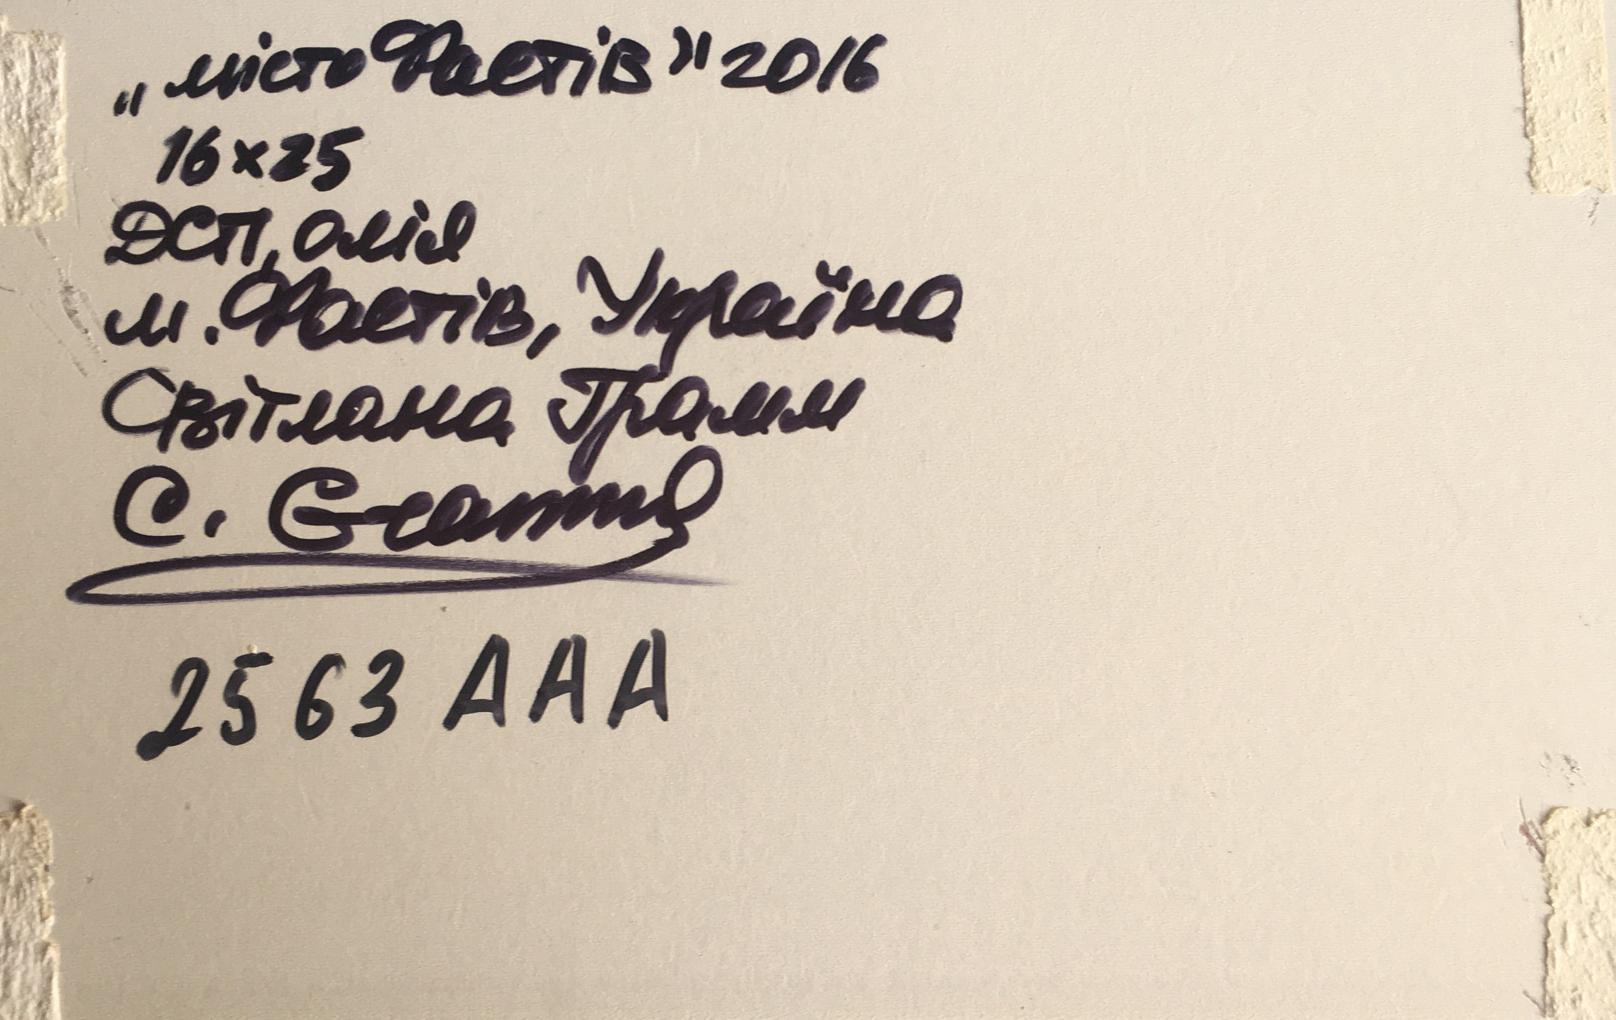 „місто Фастів" 2016
16x25
ДСП, олія
м. Фастів, Україна
Світлана Грамм
С. Gramm
2563 AAA